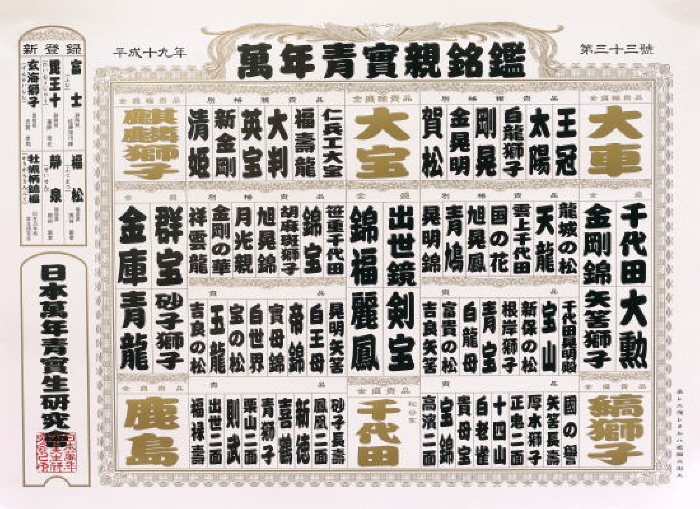 萬年青實親銘鑑
平成十九年
第三十三號
新登録
富士
玄海獅子
福松
静泉
日本萬年青實生研究會
大車
大宝
麒麟獅子
王冠
太陽
白龍獅子
剛晃
金晃明
賀松
仁兵工大宝
福壽龍
大判
英宝
新金剛
清姫
千代田
大勲
金剛錦
矢筈獅子
龍城の松
天龍
雲上千代田
国の花
旭晃龍
青鳩
晃明錦
出世鏡
剣宝
錦福
麗鳳
笹重千代田
錦宝
胡麻斑獅子
旭晃錦
月光親
金剛の華
祥雲龍
群宝
砂子獅子
金庫
青龍
千代田晃明殿
宝山
新保の松
根岸獅子
青宝
白龍母
富貴の松
吉良矢筈
晃明矢筈
白王母
帝錦
寶母錦
白世界
宝の松
玉龍
吉良の松
縞獅子
千代田
松谷家
鹿島
國の譽
矢筈長壽
厚水獅子
正鬼二面
十四山
白老雀
貴母宝
宝錦
高濱二面
砂子長壽
鳳凰二面
新徳
喜鶴
青獅子
栗山二面
則武
出世二面
福禄壽